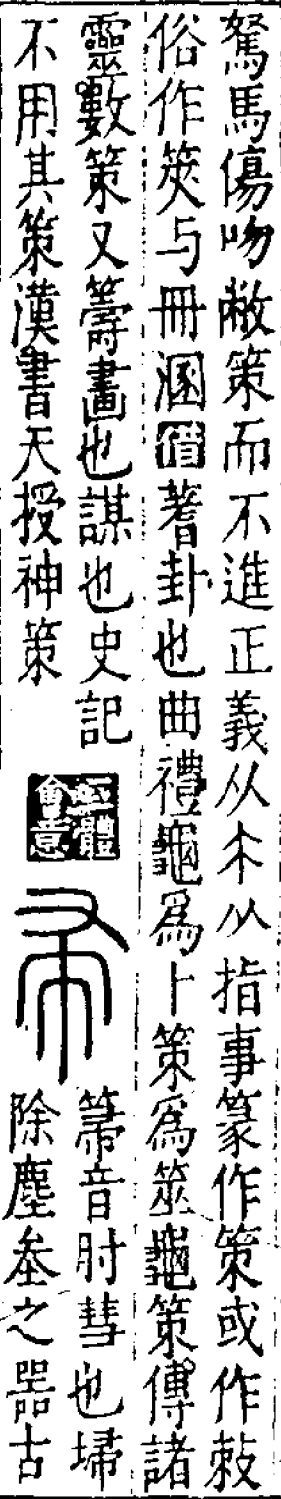 駑馬傷吻敝策而不進正義从朩从指事篆作策或作敇
俗作筴与冊溷借蓍卦也曲禮龜爲卜策爲筮龜策傳諸
靈數策又籌畫也謀也史記
不用其策漢書天授神策
體會意
帚
箒音肘彗也埽
除塵坌之器古